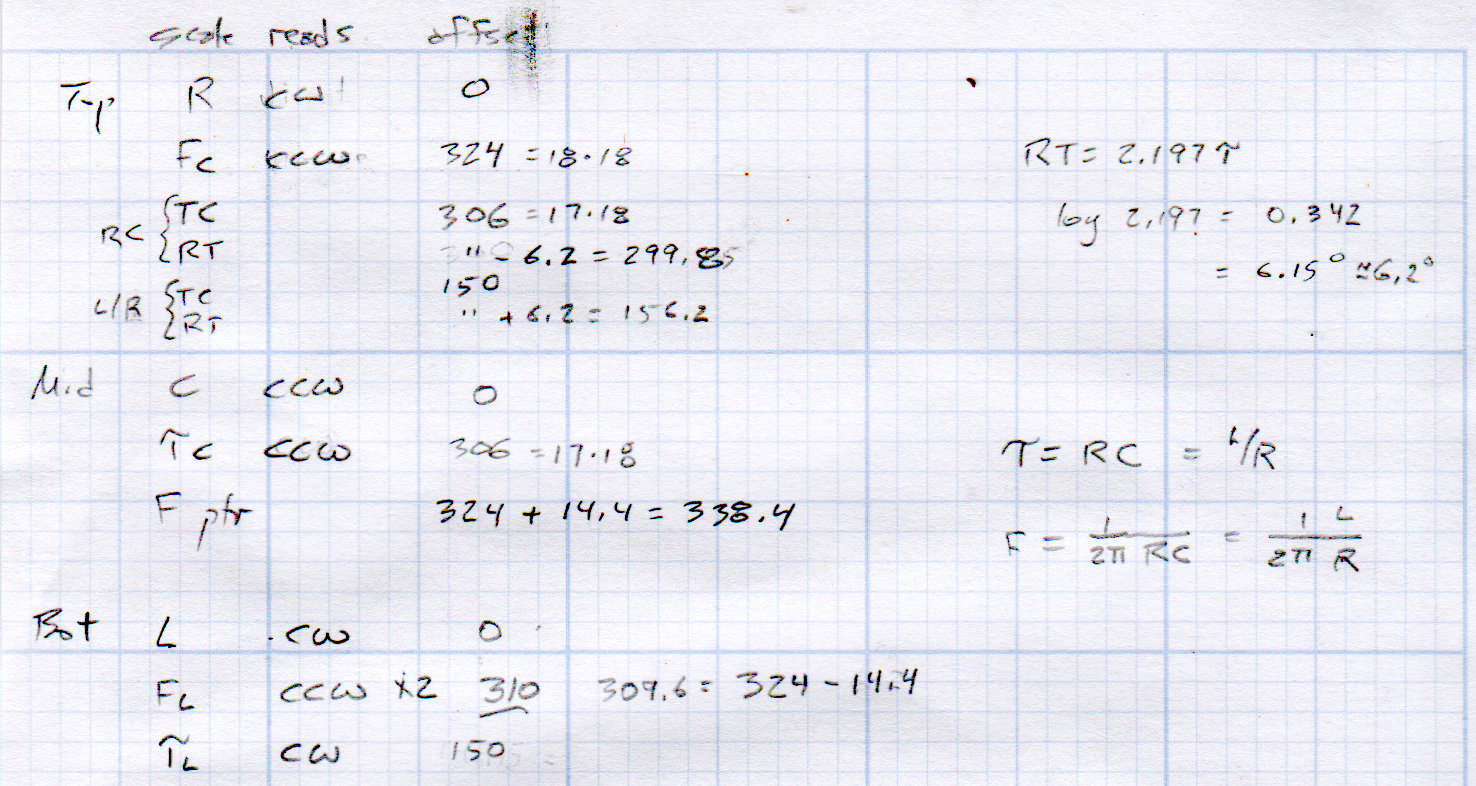 scale reads offset
Top R cw 0
Fc ccw 324 = 18·18
RT = 2.197 τ
RC { TC 306 = 17·18
log 2.197 = 0.342
RT " - 6.2 = 299.85
= 6.15° ≈ 6.2°
L/R { TC 150
RT " + 6.2 = 156.2
Mid C ccw 0
τc ccw 306 = 17·18
τ = RC = L/R
F ptr 324 + 14.4 = 338.4
F = 1/2π RC = 1/2π L/R
Bot L cw 0
FL ccw x2 310 309.6 = 324 - 14.4
τL cw 150